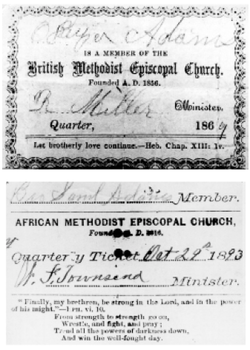 Adams
IS A MEMBER OF THE
British Methodist Episcopal Church.
Founded A. D. 1856.
R. Miller Minister.
Quarter, 186
Let brotherly love continue.—Heb. Chap. XIII: 1v.
Member.
AFRICAN METHODIST EPISCOPAL CHURCH,
D. 1816.
Quarterly Ticket Oct 29th 1893
W. F. Townsend Minister.
"Finally, my brethren, be strong in the Lord, and in the power
of his might."—
From strength to strength go on,
Wrestle, and fight, and pray;
Tread all the powers of darkness down,
And win the well-fought day.